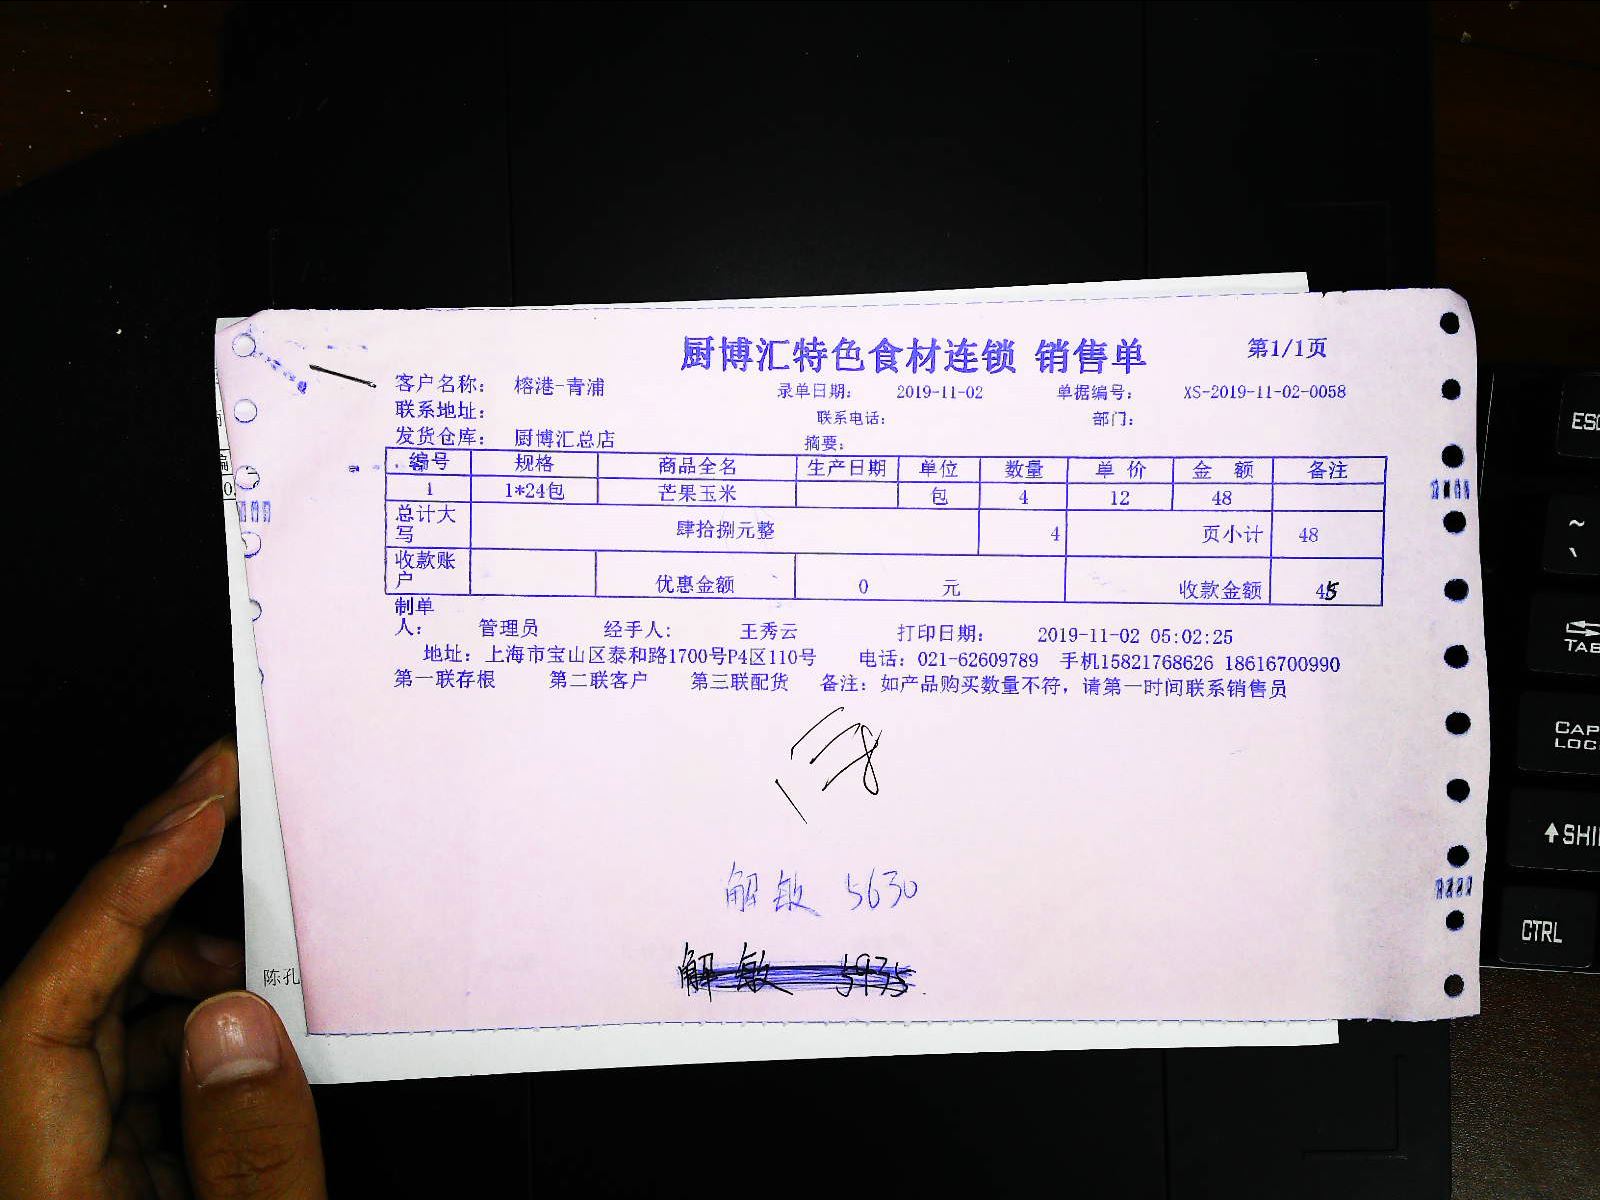 厨博汇特色食材连锁 销售单 第1/1页
客户名称： 榕港-青浦 录单日期： 2019-11-02 单据编号： XS-2019-11-02-0058
联系地址： 联系电话： 部门：
发货仓库： 厨博汇总店 摘要：
编号 规格 商品全名 生产日期 单位 数量 单 价 金 额 备注
1 1*24包 芒果玉米 包 4 12 48
总计大写 肆拾捌元整 4 页小计 48
收款账户 优惠金额 0 元 收款金额
制单人： 管理员 经手人： 王秀云 打印日期： 2019-11-02 05:02:25
地址：上海市宝山区泰和路1700号P4区110号 电话：021-62609789 手机15821768626 18616700990
第一联存根 第二联客户 第三联配货 备注：如产品购买数量不符，请第一时间联系销售员
解敏 5630
解敏 5935
陈孔
ESC
~
TAB
CAPS
LOCK
SHI
CTRL